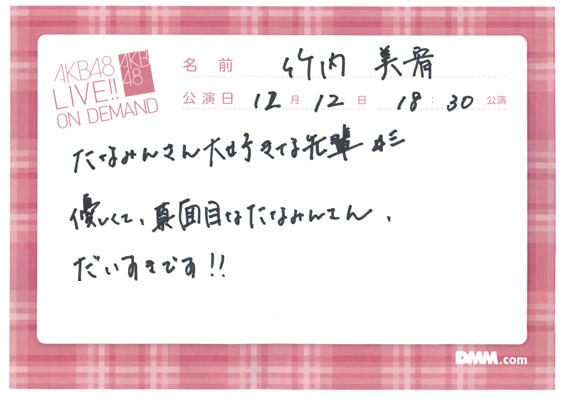 AKB48
LIVE!!
ON DEMAND
AKB
48
名前 竹内 美宥
公演日 12月12日 18:30公演
たなみんさん大好きな先輩
優しくて、真面目なたなみんさん、
だいすきです!!
DMM.com